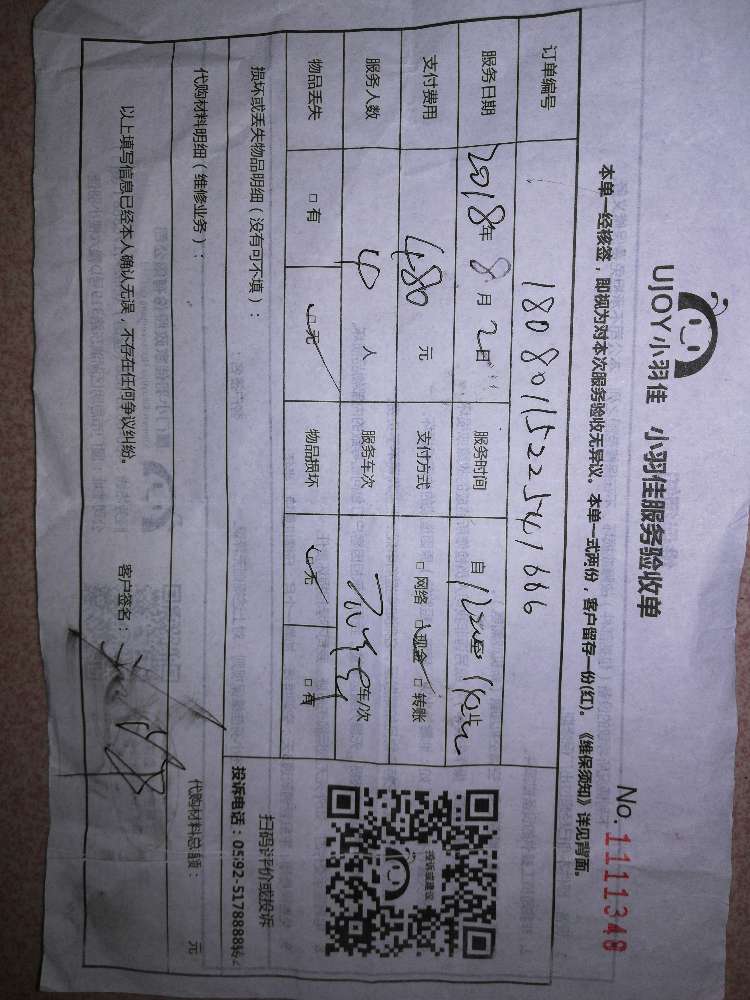 UJOY小羽佳 小羽佳服务验收单
No. 1111348
本单一经核签，即视为对本次服务验收无异议。本单一式两份，客户留存一份(红)。《维保须知》详见背面。
订单编号 1808011522541666
服务日期 2018年8月2日 服务时间 自
支付费用 480元 支付方式 □网络 □现金 □转账
服务人数 人 服务车次 车/次
物品丢失 □有 □无 物品损坏 □无 □有
损坏或丢失物品明细（没有可不填）：
代购材料明细（维修业务）： 代购材料总额： 元
以上填写信息已经本人确认无误，不存在任何争议纠纷。 客户签名：
投诉或建议
扫码评价或投诉
投诉电话：0592-5178888转2